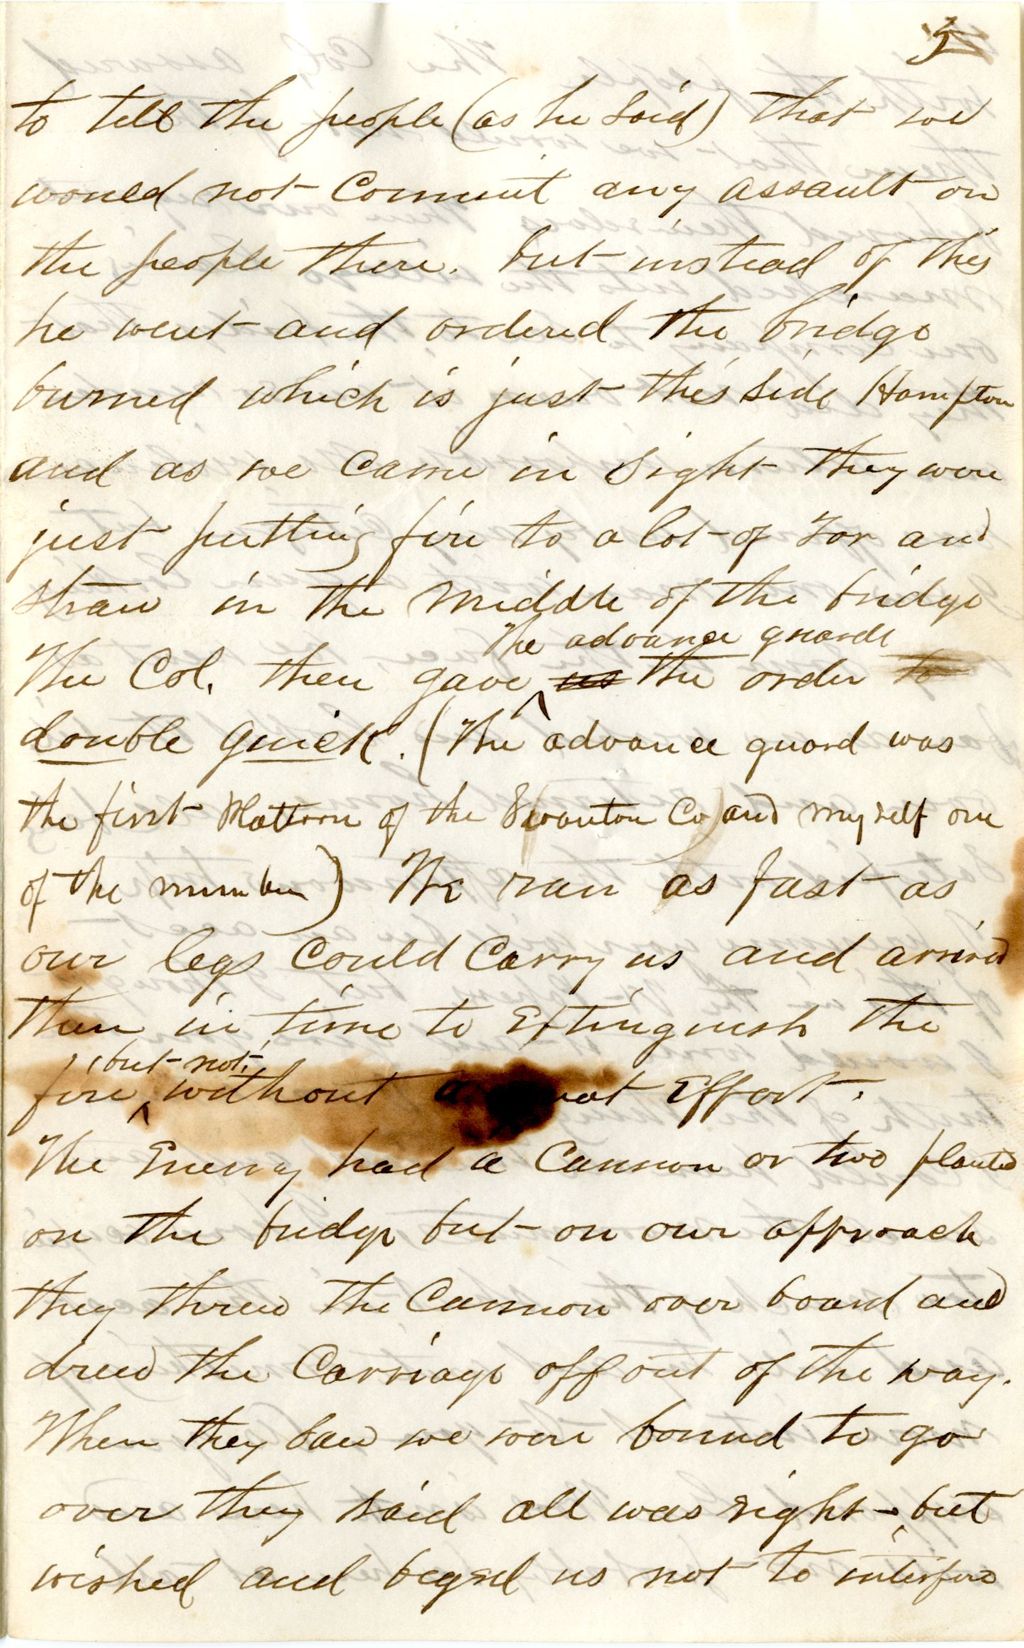 5
to tell the people (as he said) that we
would not Commit any assault on
the people there. but instead of this
he went and ordered the bridge
burned which is just this side Hampton
and as we came in sight they were
just putting fire to a lot of Tar and
straw in the middle of the bridge
The advance guards
The Col. then gave us the order to
double quick. (The advance guard was
the first Plattoon of the Swanton Co) and myself one
of the number) We ran as fast as
our legs Could Carry us and arrived
there in time to Extinguish the
but not
fire without a Effort.
The Enemy had a Cannon or two planted
on the bridge but on our approach
they threw the Cannon over board and
drew the Carriage off out of the way.
When they saw we were bound to go
over they said all was right - but
wished and begged us not to interfere